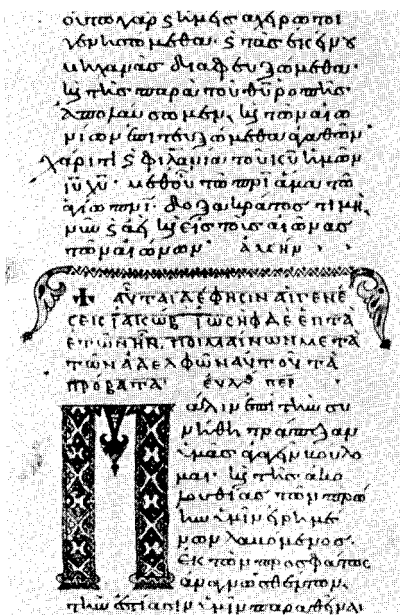 οὕτω γὰρ καὶ ἡμεῖς ἀχείρωτοι
γενησόμεθα· καὶ πάσας ἐκείνου
μηχανὰς διαφευξώμεθα·
καὶ τῆς παρὰ τοῦ θῦ ῥοπῆς
ἀπολαύσωμεν, καὶ τῶν αἰω
νίων ἐπιτευξώμεθα ἀγαθῶν·
χάριτι καὶ φιλανία τοῦ κῦ ἡμῶν
ἰῦ χῦ· μεθοῦ τῶ πρὶ ἅμα τῶ
ἁγίω πνι· δόξα κράτος τιμὴ,
νῦν καὶ ἀεὶ καὶ εἰς τοὺς αἰῶνας
τῶν αἰώνων· ἀμήν
ΑΥΤΑΙ ΔΕ ΦΗΣΙΝ ΑΙ ΓΕΝΕ
ΣΕΙΣ ΙΑΚΩΒ ΙΩΣΗΦ ΔΕ ΕΠΤΑ
ΕΤΩΝ ΗΝ, ΠΟΙΜΑΙΝΩΝ ΜΕΤΑ
ΤΩΝ ΑΔΕΛΦΩΝ ΑΥΤΟΥ ΤΑ
ΠΡΟΒΑΤΑ·
Πάλιν ἐπὶ τὴν συ
νήθη τράπεζαν
ὑμᾶς ἀγαγεῖν βούλο
μαι· καὶ τῆς ἀκο
λουθίας τῶν πρώ
ην ὑμῖν εἰρημέ
νων
ἐκ τῶν προσφάτως
ἀναγνωσθέντων,
τὴν ἑστίασιν ὑμῖν παραθεῖναι